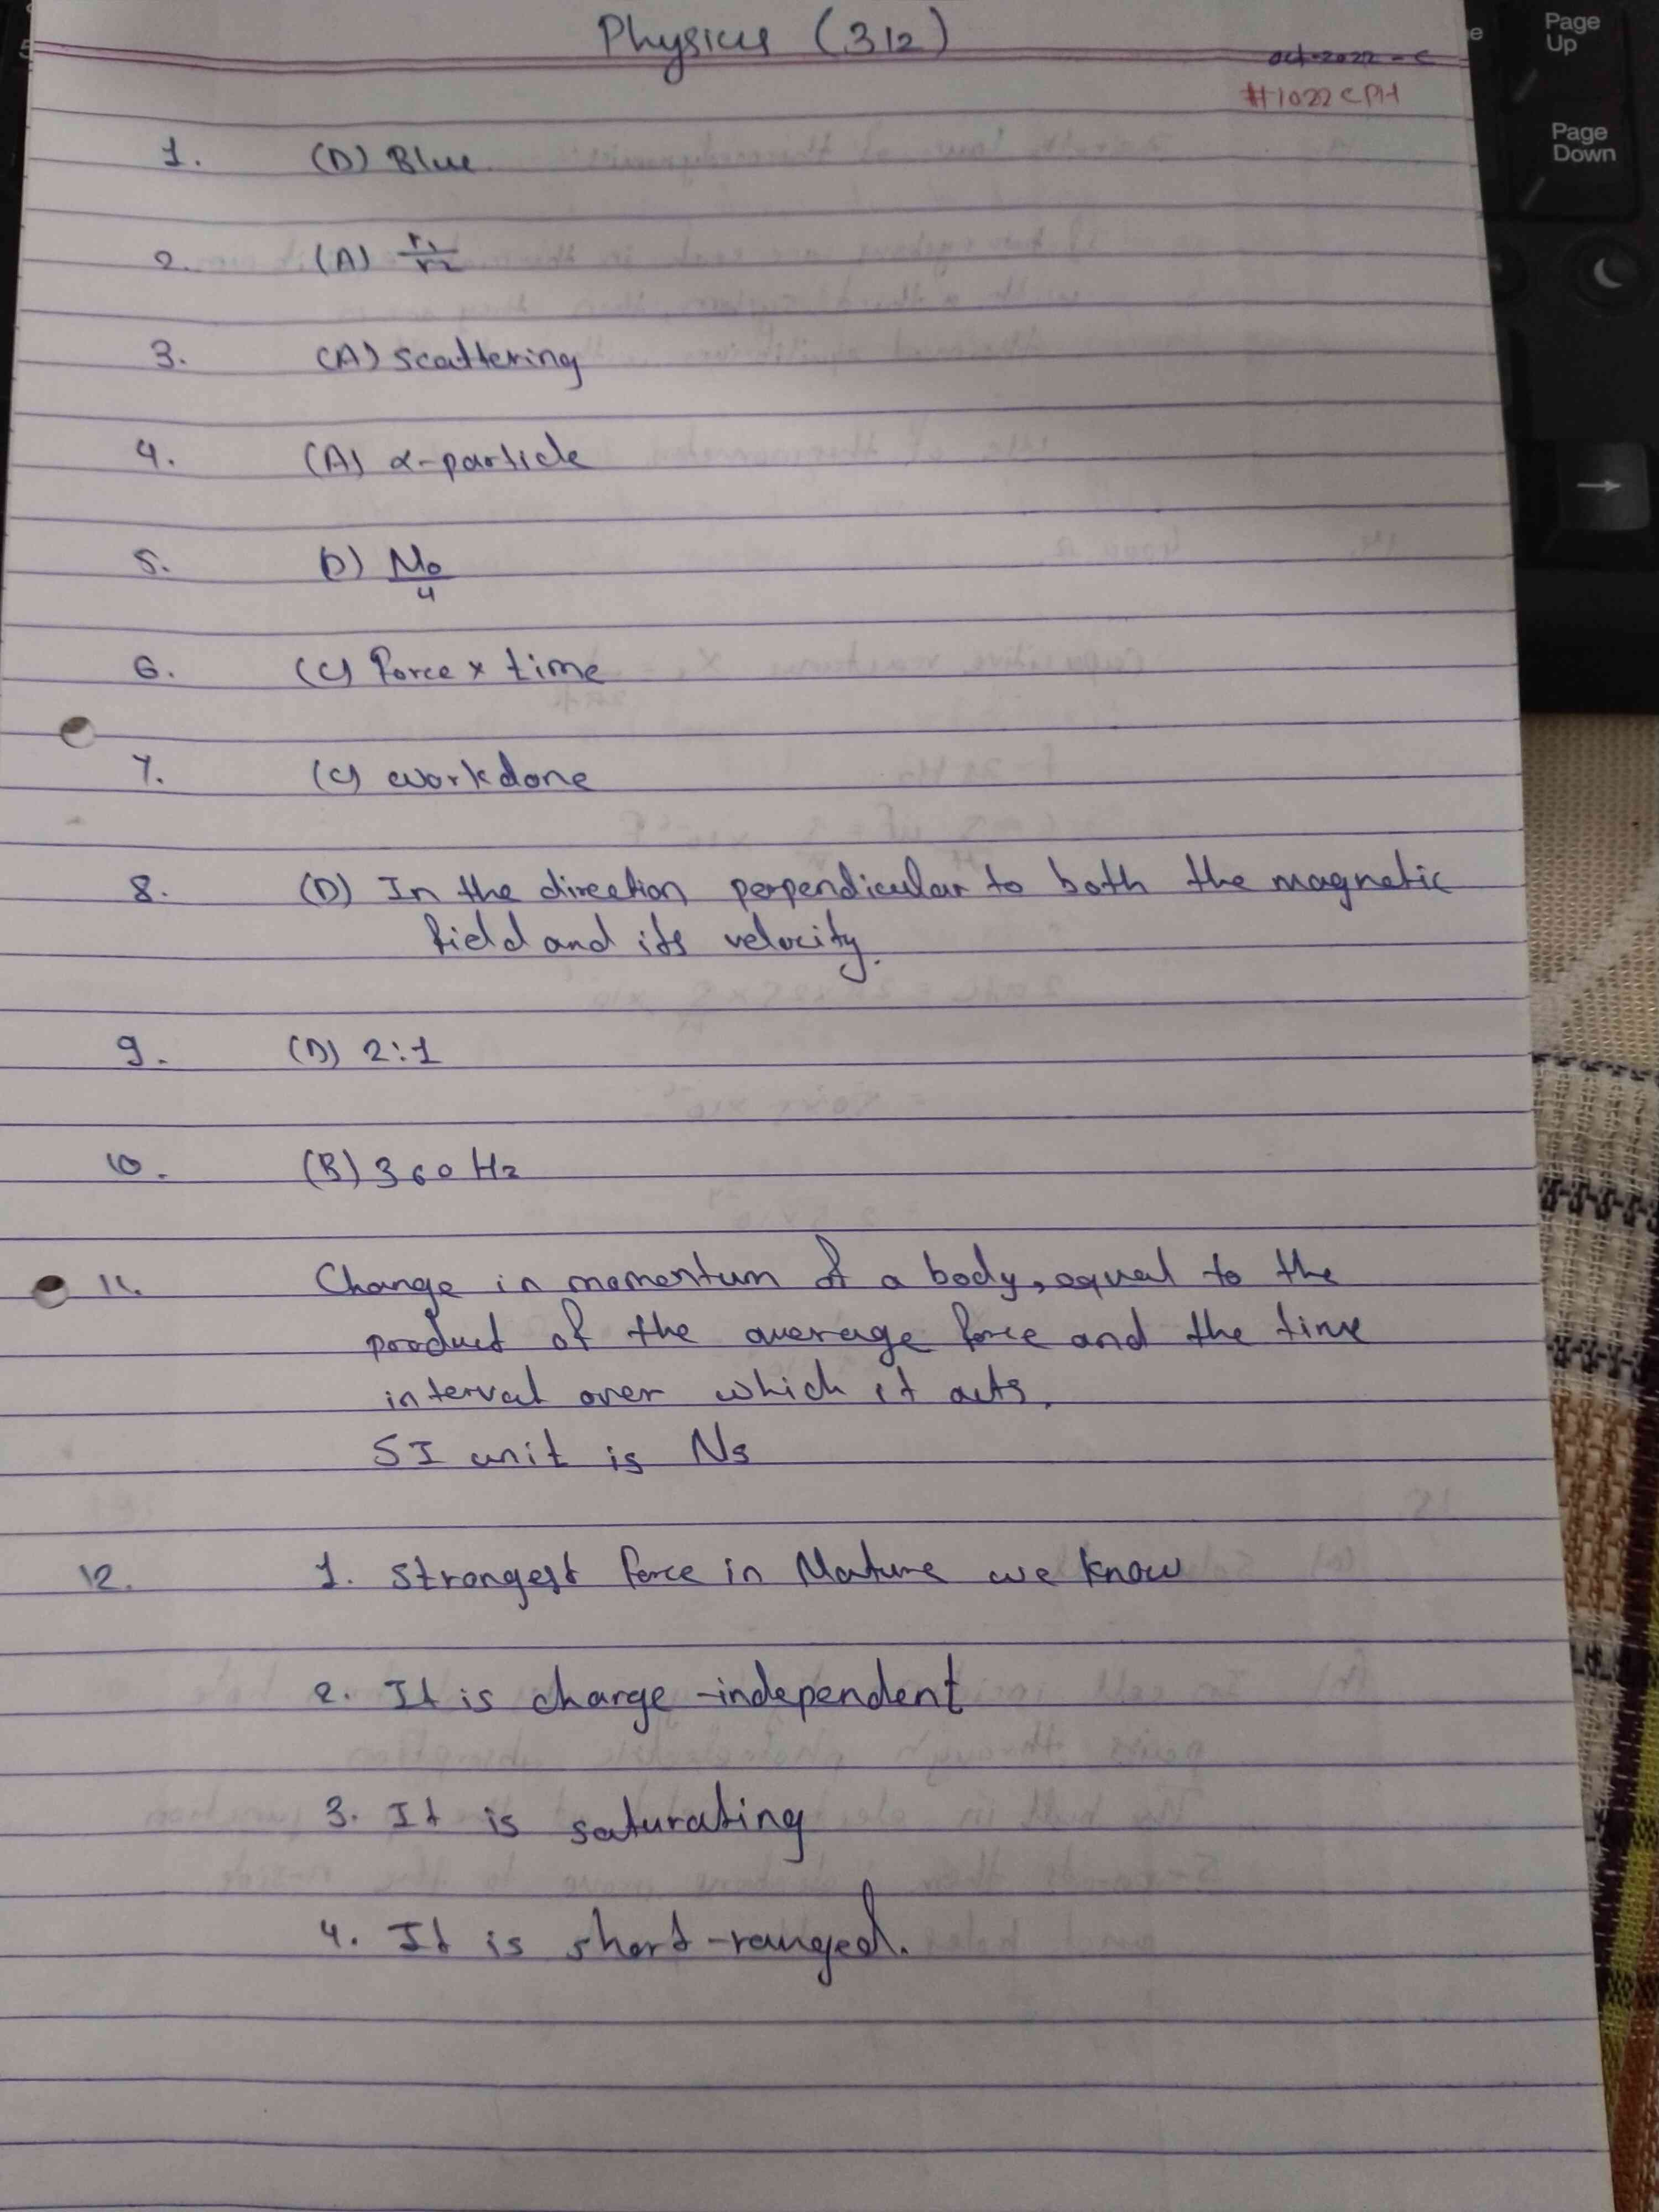 Physics (312)
Oct-2022-C
#1022CPH
1. (D) Blue
2. (A) r1/r2
3. (A) scattering
4. (A) α-particle
5. D) No/4
6. (C) Force x time
7. (C) workdone
8. (D) In the direction perpendicular to both the magnetic
field and its velocity.
9. (D) 2:1
10. (B) 360 Hz
11. Change in momentum of a body, equal to the
product of the average force and the time
interval over which it acts.
SI unit is Ns
12. 1. Strongest force in Nature we know
2. It is charge-independent
3. It is saturating
4. It is short-ranged.
Page
Up
Page
Down
→